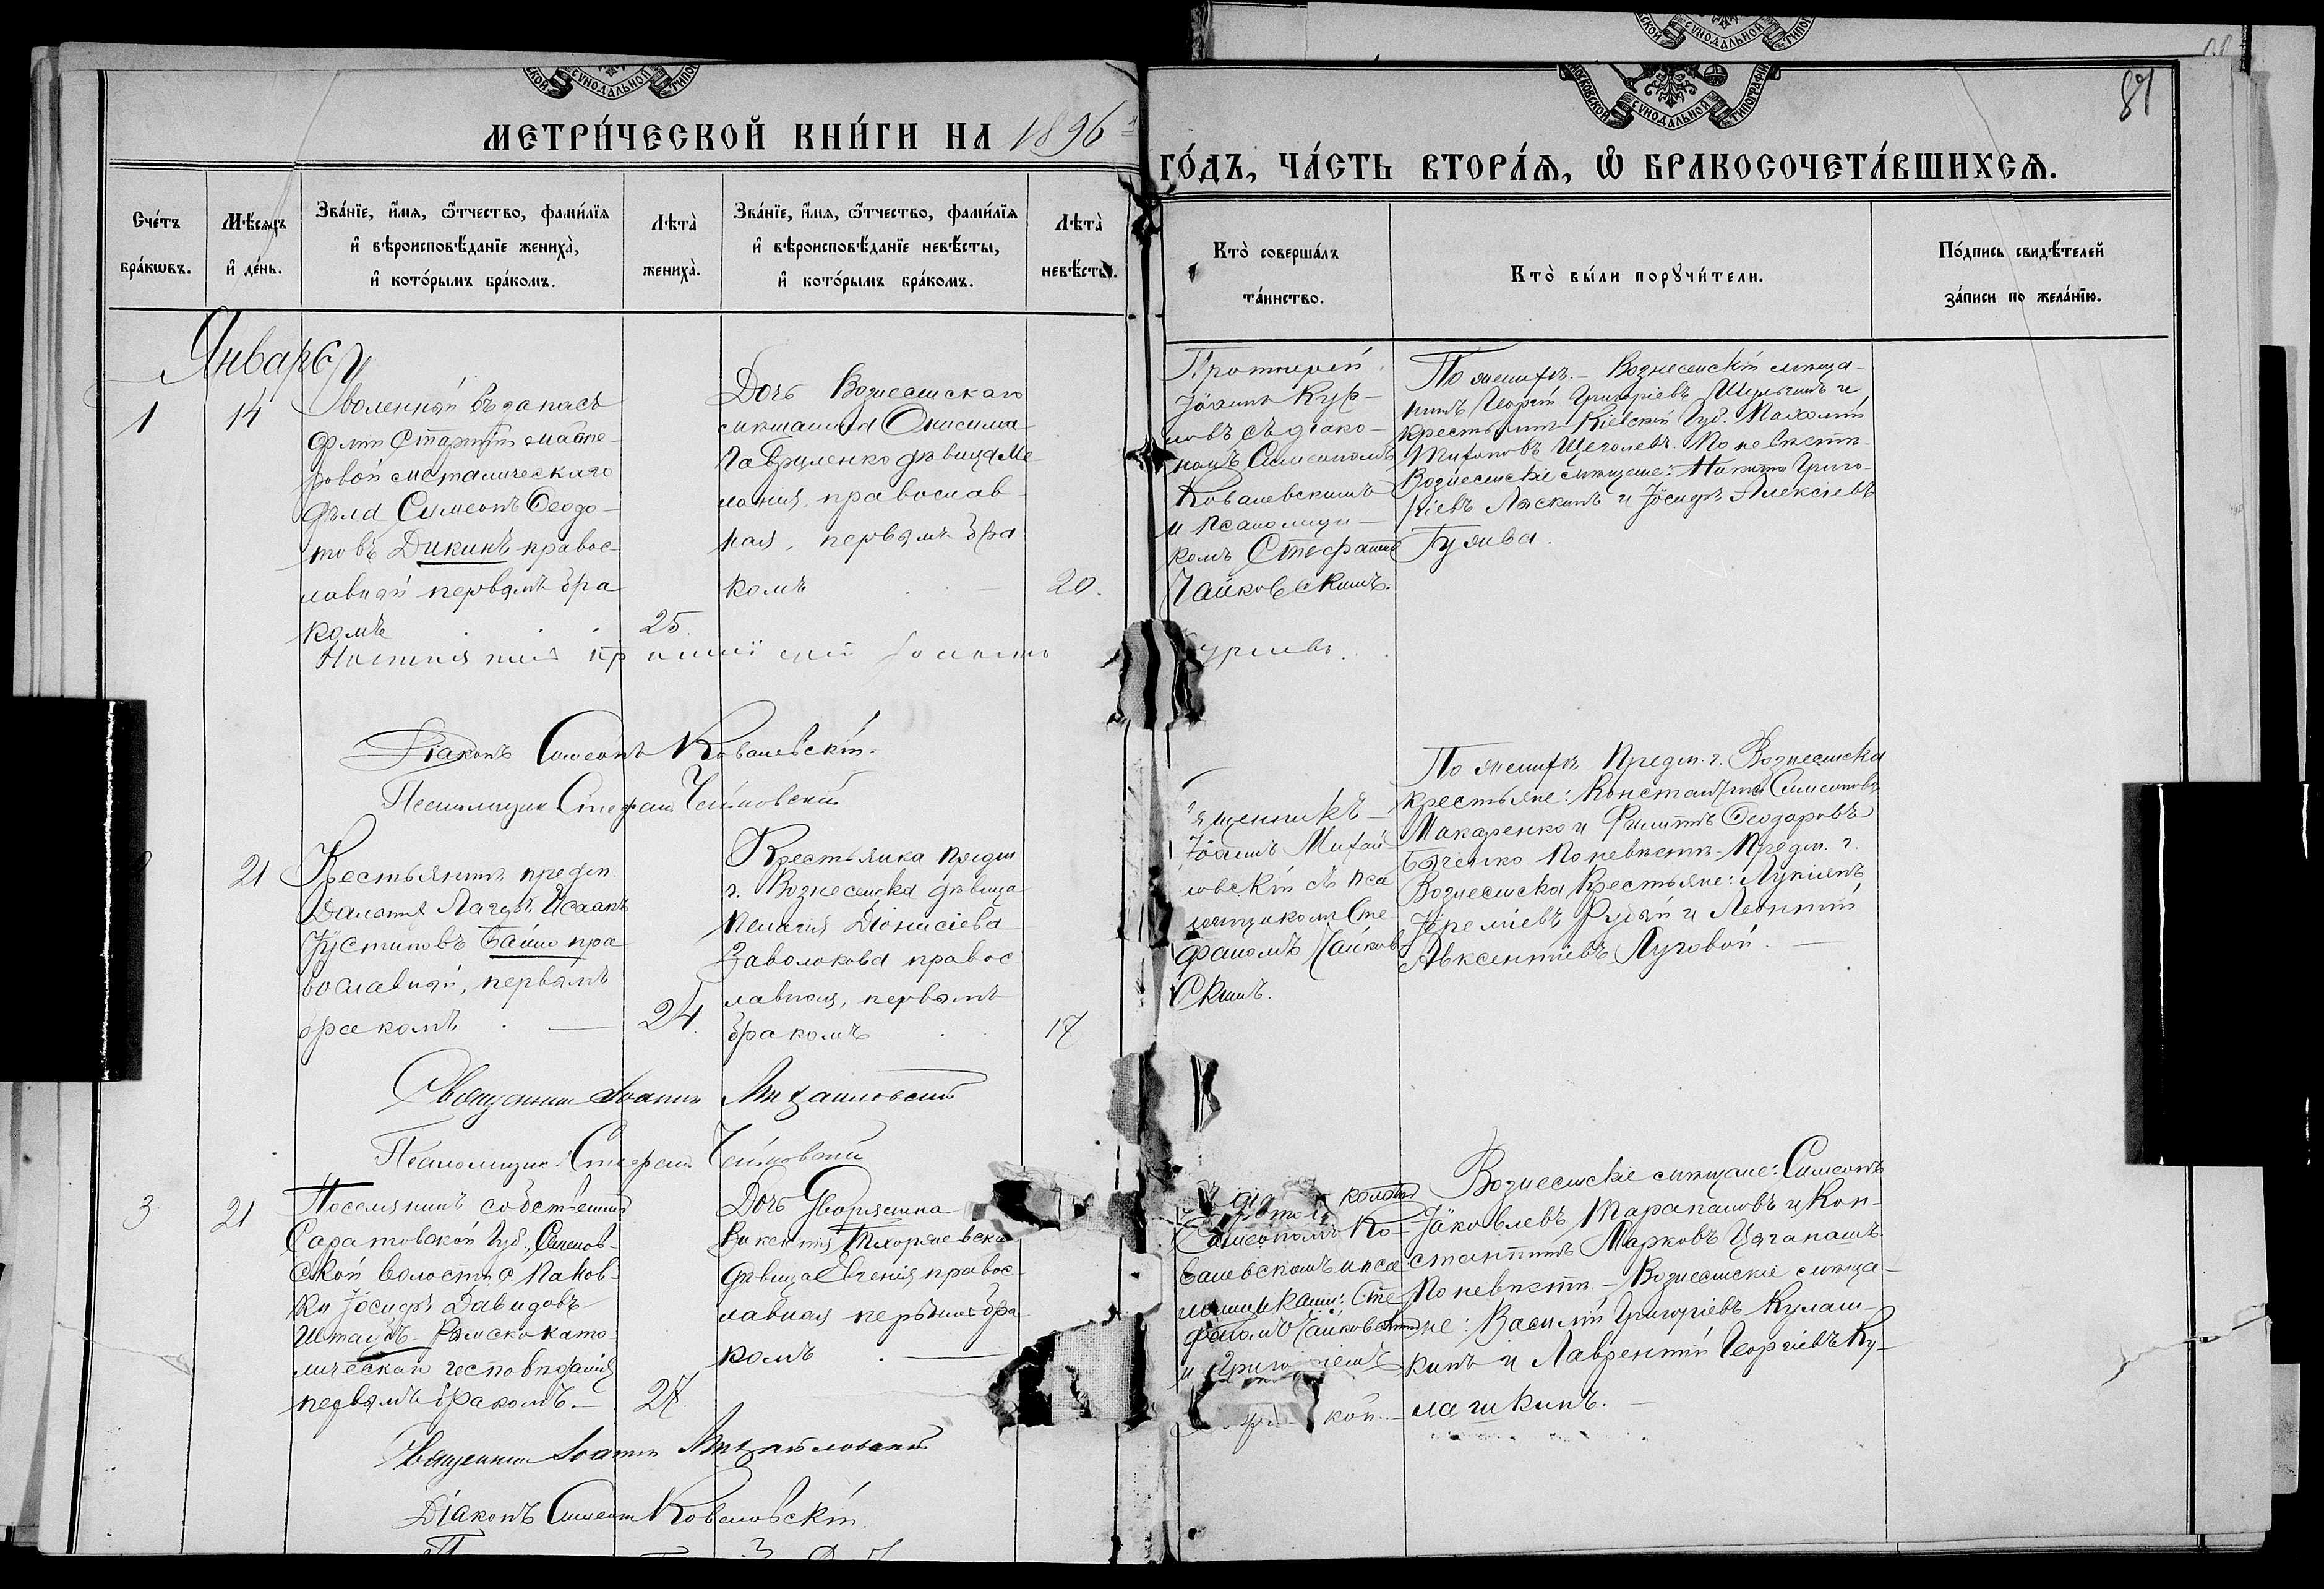 МЕТРИ́ЧЕСКОЙ КНИ́ГИ НА 1896
ГО́ДЪ, ЧА́СТЬ ВТОРА́Ѧ, Ѡ҆ БРАКОСОЧЕТА́ВШИХСѦ.
87
МОСКОВСКОЙ СѴНОДАЛЬНОЙ ТИПОГРАФІИ
Сче́тъ
бра́кѡвъ.
Мѣ́сяцъ
и҆ де́нь.
Зва́нїе, и҆́мѧ, ѻ҆́тчество, фами́лїѧ
и҆ вѣроисповѣ́данїе жениха̀,
и҆ кото́рымъ бра́комъ.
Лѣта̀
жениха̀.
Зва́нїе, и҆́мѧ, ѻ҆́тчество, фами́лїѧ
и҆ вѣроисповѣ́данїе невѣ́сты,
и҆ кото́рымъ бра́комъ.
Лѣта̀
невѣ́сты.
Кто̀ соверша́лъ
та́инство.
Кто̀ бы́ли порꙋчи́тели.
По́дпись свидѣ́телей
за́писи по жела́нїю.
Январь
1
14
Уволенный въ запасъ
старшій
Симеонъ Ѳеодо-
товъ Дикинъ правос-
лавный первымъ бра
комъ
25.
Дочь Вознесенскаго
мѣщанина Онисима
Гавриленко дѣвица Ме-
ланія, православ-
ная, первымъ бра
комъ
20.
Протоіерей
Іоаннъ
съ діако-
номъ Симеономъ
Ковалевскимъ
и псаломщи-
комъ Стефаномъ
Чайковскимъ.
По женихѣ - Вознесенскій мѣща-
нинъ Георгій Григоріевъ и
крестьянинъ Кіевской Губ.
Щеголевъ. По невѣстѣ
Вознесенскіе мѣщане: Никита Григо-
ріевъ Ласкинъ и Іосифъ Алексіевъ
Гулива.
Діаконъ Симеонъ Ковалевскій.
Псаломщикъ Стефанъ Чайковскій
21
Крестьянинъ предм.
Исаакъ
Іустиновъ Байло пра
вославный, первымъ
бракомъ
24.
Крестьянка предм
г. Вознесенска дѣвица
Пелагія Діонисіева
Заволокова правос
лавная, первымъ
бракомъ
17
ященникъ
Іоаннъ Михай
ловскій съ пса
ломщикомъ Сте
фаномъ Чайков
скимъ.
По женихѣ Предм. г. Вознесенска
крестьяне: Константинъ Симеоновъ
Макаренко и Филиппъ Ѳеодоровъ
По невѣстѣ - Предм. г.
Вознесенска Крестьяне: Лукіянъ
Іереміевъ Рудый и Леонтій
Авксентіевъ Луговой.
Священникъ Іоаннъ Михайловскій
Псаломщикъ Стефанъ Чайковскій
3
21
Поселянинъ собственникъ
Саратовской Губ., Семенов-
ской волости с. Паков-
ки Іосифъ Давидовъ
Штаубъ - Римскокато
лическаго исповѣданія
первымъ бракомъ.
27.
Дочь Дворянина
Викентія
дѣвица Евгенія правос-
лавная первымъ бра-
комъ
Симеономъ Ко-
валевскимъ и пса
ломщиками: Сте
фаномъ Чайковскимъ
и
Вознесенскіе мѣщане: Симеонъ
Іаковлевъ Тарапановъ и Кон-
стантинъ Марковъ Цяганашъ.
По невѣстѣ - Вознесенскіе мѣща-
не: Василій Григоріевъ Кулаш-
кинъ и Лаврентій Георгіевъ Ку-
лашкинъ.
Священникъ Іоаннъ Михайловскій
Діаконъ Симеонъ Ковалевскій.